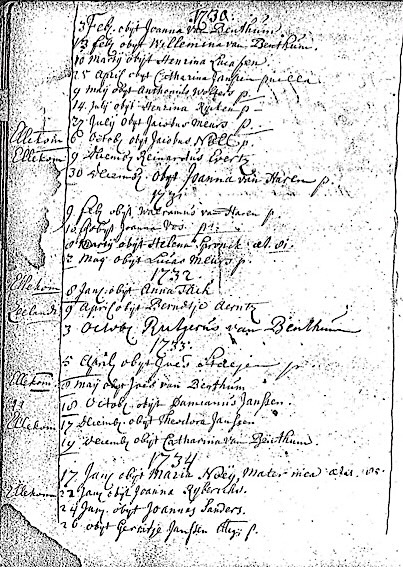 1730.
3 Feb: obijt Joanna van Benthum.
13 Feb: obijt Willemina van Benthum.
10 Martij obijt Henrina Lucassen.
25 April obijt Catharina Janssen puella
9 Maij obijt Anthonius Wolters p.
14 Julij obijt Henrina Rijken p
27 Julij obijt Jacobus Meurs p.
Ellekom 6 Octob: obijt Jacobus Nöll p.
Ellekom 9 Decemb Reinardus Evertz
30 Decemb obijt Joanna van Haren p.
1731.
9 Feb obijt Walramus van Haren p.
obijt Joanna Vos. p.
8 Martij obijt Helena æt. 61.
2 Maij obijt Lucas Meurs p.
1732.
Ellekom 8 Janu: obijt Anna
9 April obijt Berndje Aerntz
3 Octob: Rutgerus van Benthum
1733.
5 April obijt p
Ellekom 8 Maij obijt van Benthum
18 Octob. obijt Damianus Janssen.
Ellekom 17 Decemb: obijt Theodora Janssen
19 Decemb obijt Catharina van Benthum.
1734
17 Janu obijt Maria Noëÿ, Mater mea ætat.
Ellekom 22 Janu obijt Joanna
24 Janu. obijt Joannas Sanders.
26 obijt Gerritje Janssen p.